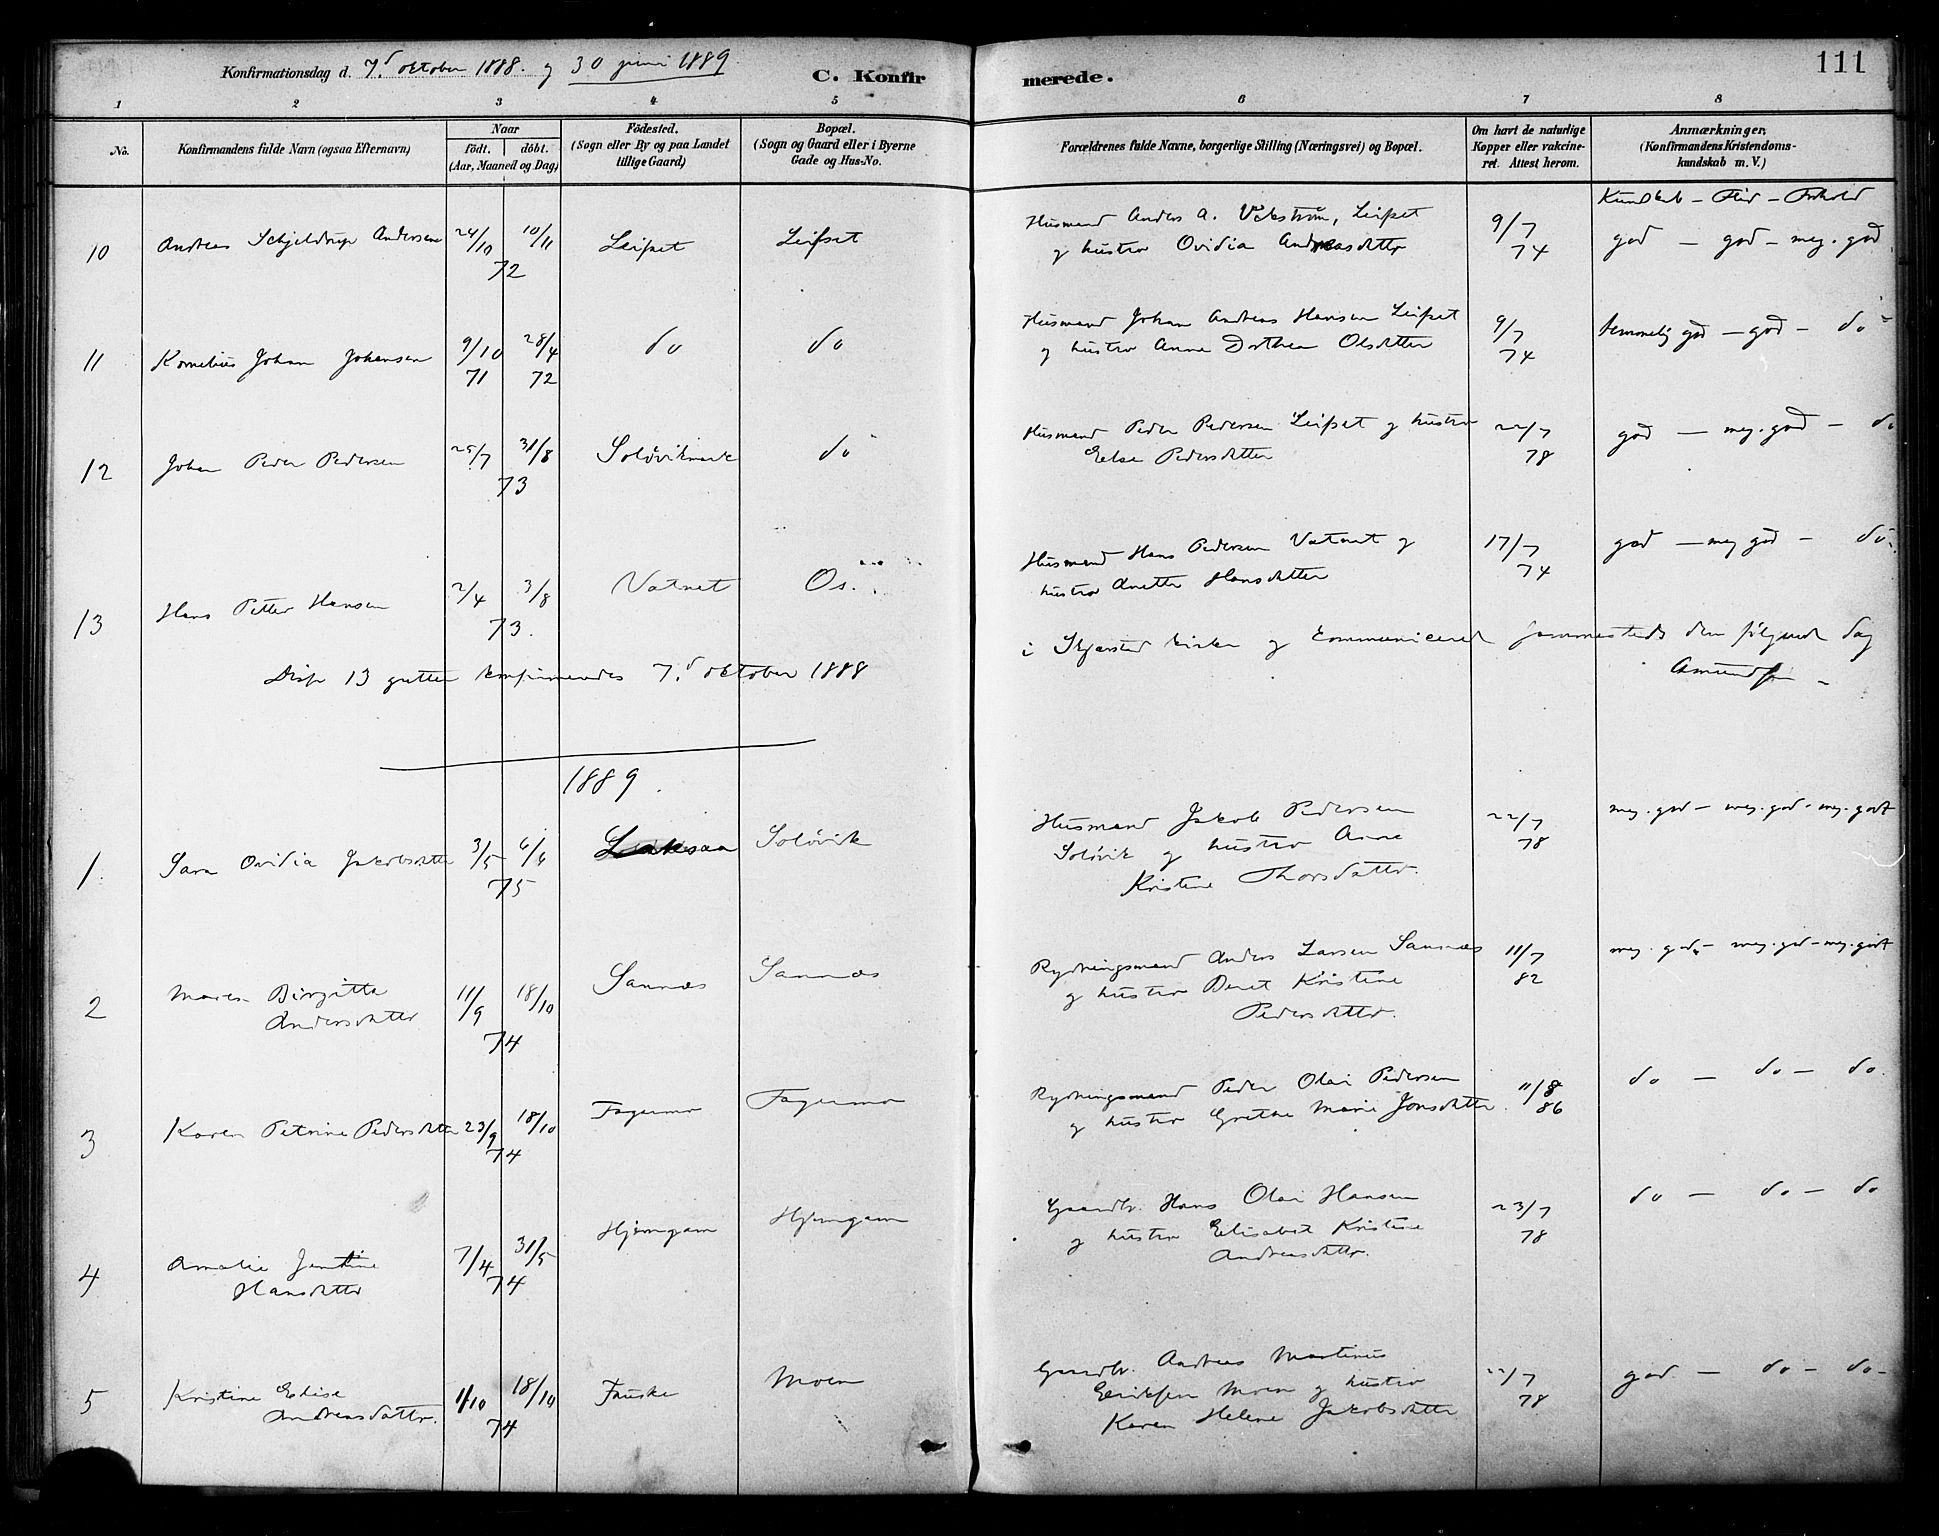 111
Konfirmationsdag d. 7.d oktober 1888. og 30 juni 1889
C. Konfirmerede.
1 2 3 4 5 6 7 8
No.
Konfirmandens fulde Navn (ogsaa Efternavn)
Naar
födt. döbt.
(Aar, Maaned og Dag)
Födested.
(Sogn eller By og paa Landet
tillige Gaard)
Bopæl.
(Sogn og Gaard eller i Byerne
Gade og Hus-No.
Forældrenes fulde Navne, borgerlige Stilling (Næringsvei) og Bopæl.
Om havt de naturlige
Kopper eller vakcine-
ret. Attest herom.
Anmærkninger,
(Konfirmandens Kristendoms-
kundskab m. V.)
Kundskab - Flid - Forhold
10 Andreas Schjeldrup Andersen 24/10 10/11 72 Leifset Leifset Husmand Anders A. Vestrøm, Leifset
og hustro Ovidia Andreasdtter 9/7 74 god - god - meg. god
11 Kornelius Johan Johansen 9/10 71 28/4 72 do do Husmand Johan Andreas Hansen Leifset
og hustro Anne Dorthea Olsdatter 9/7 74 temmelig god - god - do
12 Johan Peder Pedersen 25/7 31/8 73 Soløvikmark do Husmand Peder Pedersen Leifset og hustro
Else Pedersdatter 22/7 78 god - meg. god - do
13 Hans Petter Hansen 2/4 3/8 73. Vatnet Os. Husmand Hans Pedersen Vatnet og
hustro Anette Hansdatter 17/7 74 god - meg god - do
Disse 13 gutter konfirmeredes 7.d oktober 1888 i Skjerstad kirke og kommunicerede sammesteds den følgende dag
Asmundsen
1889.
1. Sara Ovidia Jakobsdtter 3/5 6/6 75 Laksaa Soløvik Husmand Jakob Pedersen
Soløvik og hustro Anne
Kristine Thorsdatter. 22/7 78 meg. god - meg. god - meg. godt
2 Maren Birgitte
Andersdatter 11/9 18/10 74 Sannæs Sannæs Rydningsmand Anders Larsen Sannæs
og hustro Beret Kristine
Pedersdatter. 11/7 82 meg. god - meg. god - meg. godt
3 Karen Petrine Pedersdtter 23/9 18/10 74 Fagermo Fagermo Rydningsmand Peder Olai Pedersen
og hustro Grethe Marie Jonsdtter. 11/8 86 do - do - do.
4 Amalie Jentine
Hansdatter 7/4 31/5 74 Hjemgam Hjemgam Gaardbr. Hans Olai Hansen
og hustro Elisabet Kristine
Andreasdatter. 23/7 78 do - do - do
5 Kristine Elise
Andreasdatter. 1/10 18/10 74 Fauske Moen Gaardbr. Andreas Martinus
Eriksen Moen og hustro
Karen Helene Jakobsdtter 22/7 78 god - do - do -